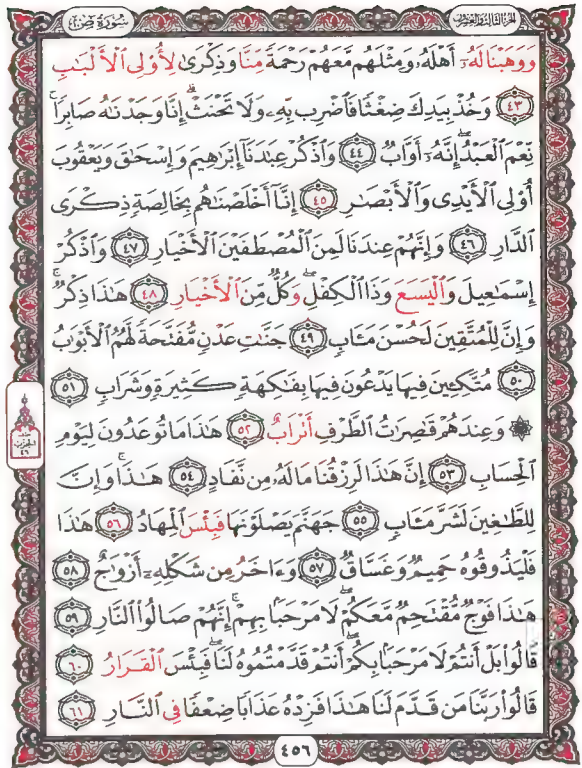 سُورَةُ صٓ
الجزء الثالث والعشرون
وَوَهَبْنَا لَهُۥٓ أَهْلَهُۥ وَمِثْلَهُم مَّعَهُمْ رَحْمَةً مِّنَّا وَذِكْرَىٰ لِأُو۟لِى ٱلْأَلْبَٰبِ
٤٣ وَخُذْ بِيَدِكَ ضِغْثًا فَٱضْرِب بِّهِۦ وَلَا تَحْنَثْ ۗ إِنَّا وَجَدْنَٰهُ صَابِرًا ۚ
نِّعْمَ ٱلْعَبْدُ ۖ إِنَّهُۥٓ أَوَّابٌ ٤٤ وَٱذْكُرْ عِبَٰدَنَآ إِبْرَٰهِيمَ وَإِسْحَٰقَ وَيَعْقُوبَ
أُو۟لِى ٱلْأَيْدِى وَٱلْأَبْصَٰرِ ٤٥ إِنَّآ أَخْلَصْنَٰهُم بِخَالِصَةٍ ذِكْرَى
ٱلدَّارِ ٤٦ وَإِنَّهُمْ عِندَنَا لَمِنَ ٱلْمُصْطَفَيْنَ ٱلْأَخْيَارِ ٤٧ وَٱذْكُرْ
إِسْمَٰعِيلَ وَٱلْيَسَعَ وَذَا ٱلْكِفْلِ ۖ وَكُلٌّ مِّنَ ٱلْأَخْيَارِ ٤٨ هَٰذَا ذِكْرٌ ۚ
وَإِنَّ لِلْمُتَّقِينَ لَحُسْنَ مَـَٔابٍ ٤٩ جَنَّٰتِ عَدْنٍ مُّفَتَّحَةً لَّهُمُ ٱلْأَبْوَٰبُ
٥٠ مُتَّكِـِٔينَ فِيهَا يَدْعُونَ فِيهَا بِفَٰكِهَةٍ كَثِيرَةٍ وَشَرَابٍ ٥١
۞ وَعِندَهُمْ قَٰصِرَٰتُ ٱلطَّرْفِ أَتْرَابٌ ٥٢ هَٰذَا مَا تُوعَدُونَ لِيَوْمِ
ٱلْحِسَابِ ٥٣ إِنَّ هَٰذَا لَرِزْقُنَا مَا لَهُۥ مِن نَّفَادٍ ٥٤ هَٰذَا ۚ وَإِنَّ
لِلطَّٰغِينَ لَشَرَّ مَـَٔابٍ ٥٥ جَهَنَّمَ يَصْلَوْنَهَا فَبِئْسَ ٱلْمِهَادُ ٥٦ هَٰذَا
فَلْيَذُوقُوهُ حَمِيمٌ وَغَسَّاقٌ ٥٧ وَءَاخَرُ مِن شَكْلِهِۦٓ أَزْوَٰجٌ ٥٨
هَٰذَا فَوْجٌ مُّقْتَحِمٌ مَّعَكُمْ ۖ لَا مَرْحَبًۢا بِهِمْ ۚ إِنَّهُمْ صَالُوا۟ ٱلنَّارِ ٥٩
قَالُوا۟ بَلْ أَنتُمْ لَا مَرْحَبًۢا بِكُمْ ۖ أَنتُمْ قَدَّمْتُمُوهُ لَنَا ۖ فَبِئْسَ ٱلْقَرَارُ ٦٠
قَالُوا۟ رَبَّنَا مَن قَدَّمَ لَنَا هَٰذَا فَزِدْهُ عَذَابًا ضِعْفًا فِى ٱلنَّارِ ٦١
نصف
الحزب
٤٦
٤٥٦